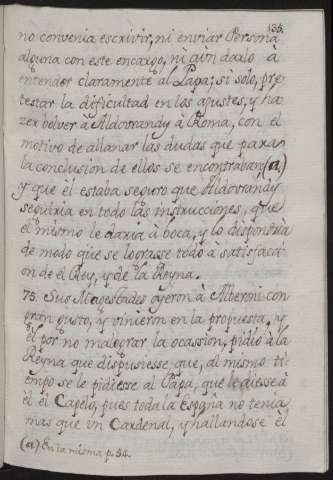 135.
no convenia escrivir, ni enviar Persona
alguna con este encargo, ni aún darlo à
entender claramente al Papa; si solo, pre
testar la dificultad en los ajustes, y ha
zer bolver à Aldovrandy à Roma, con el
motivo de allanar las dudas que para
la conclusion de ellos se encontravan; (a)
y que él estaba seguro que Aldovrandy
seguiria en todo las instrucciones, que
el mismo le daria à boca, y lo dispondria
de modo que se lograsse todo à satisfacci
on de el Rey, y de la Reyna.
75. Sus Magestades oyeron à Alberni con
gran gusto, y vinieron en la propuesta, y
él por no malograr la ocassion, pidiò à la
Reyna que dispusiesse que, al mismo ti
empo se le pidiesse al Papa, que le diesse à
él el Capelo, pues toda la España no tenia
mas que un Cardenal, y hallandose él
(a) En la misma p. 34.